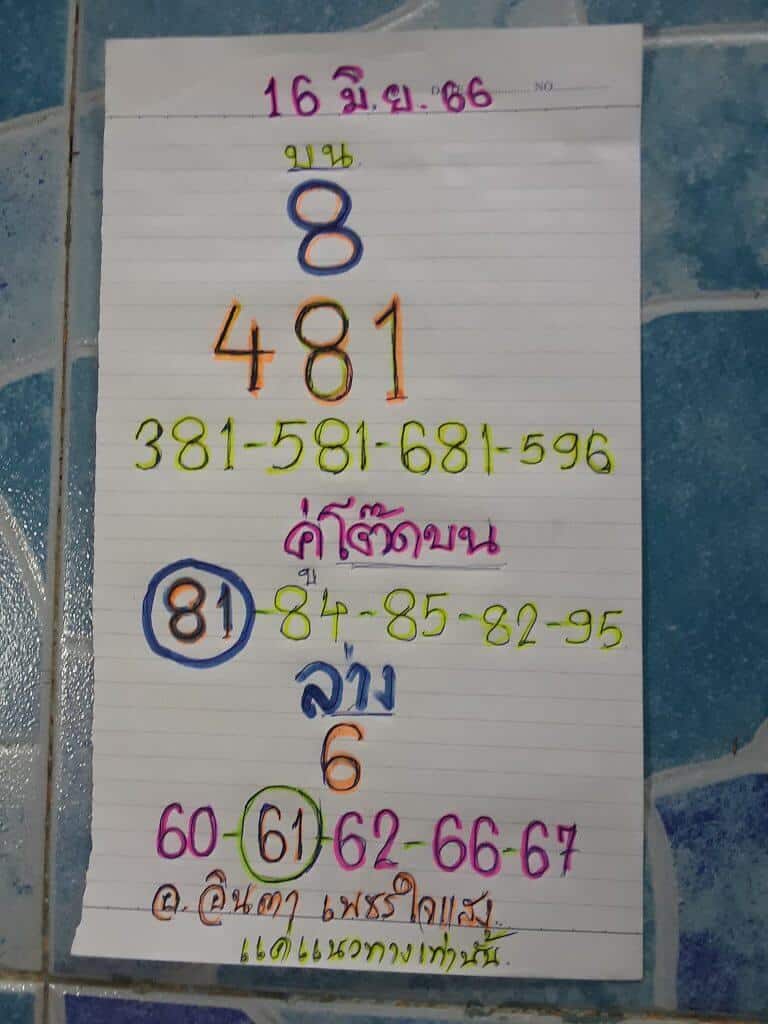 16 มิ.ย. 66
NO
บน
8
481
381-581-681-596
คู่โต๊ดบน
81-84-85-82-95
ล่าง
6
60-61-62-66-67
อ. อินตา เพชรใจแสง
แค่แนวทางเท่านั้น.